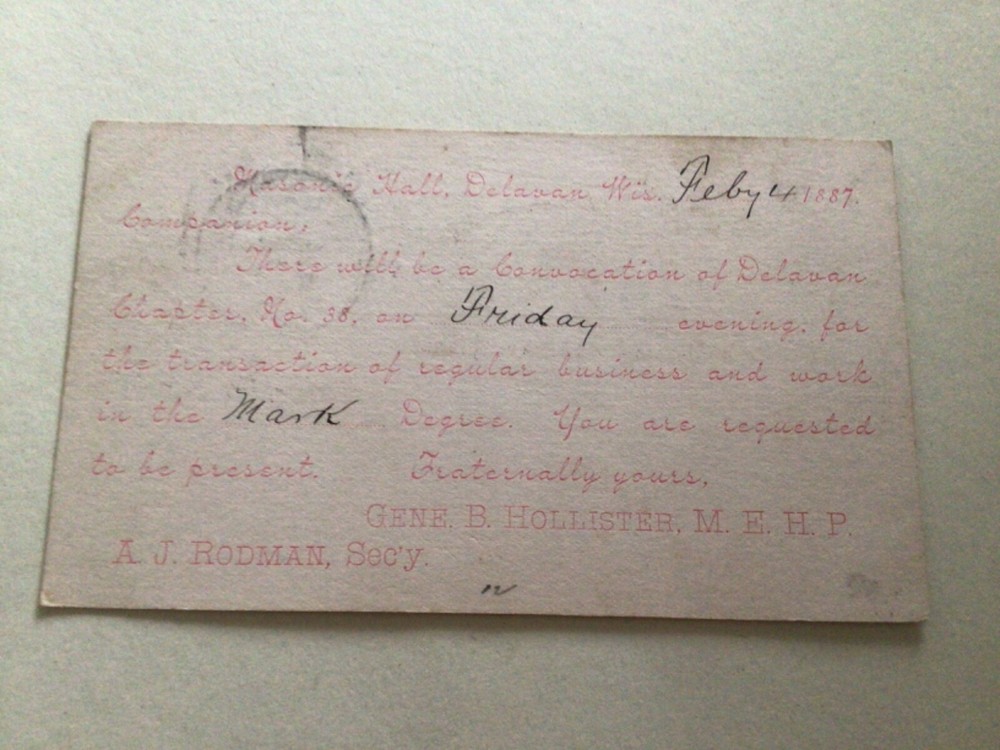 Masonic Hall, Delavan Wis. Feby 4 1887.
Companion:
There will be a Convocation of Delavan
Chapter, No. 38, on Friday evening, for
the transaction of regular business and work
in the Mark Degree. You are requested
to be present. Fraternally yours,
GENE. B. HOLLISTER, M. E. H. P.
A. J. RODMAN, Sec'y.